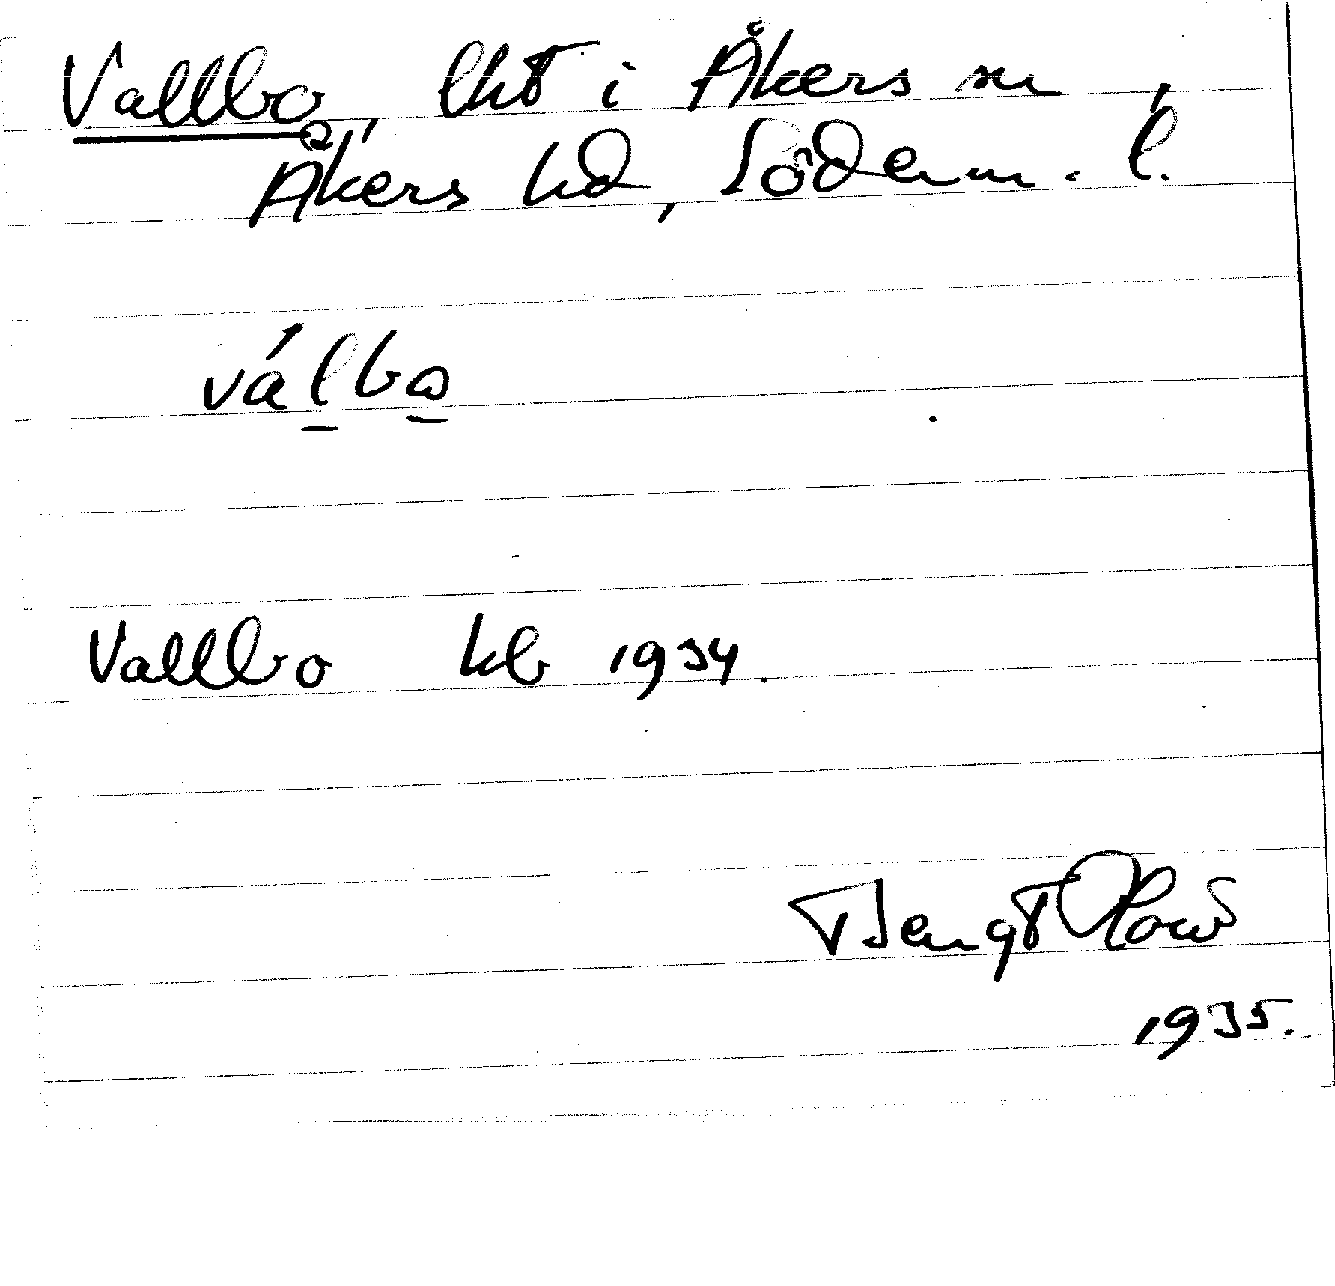 Vallbo, lht i Åkers sn,
Åkers hd, Söderm. l.
válbo
Vallbo kb 1934.
Bengt
1935.